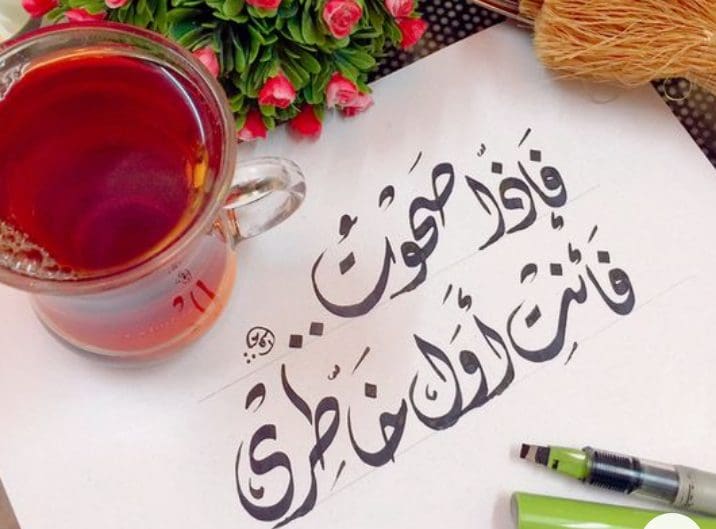 فَإِذَا صَحَوْتُ
فَأَنْتِ أَوَّلُ خَاطِرِي